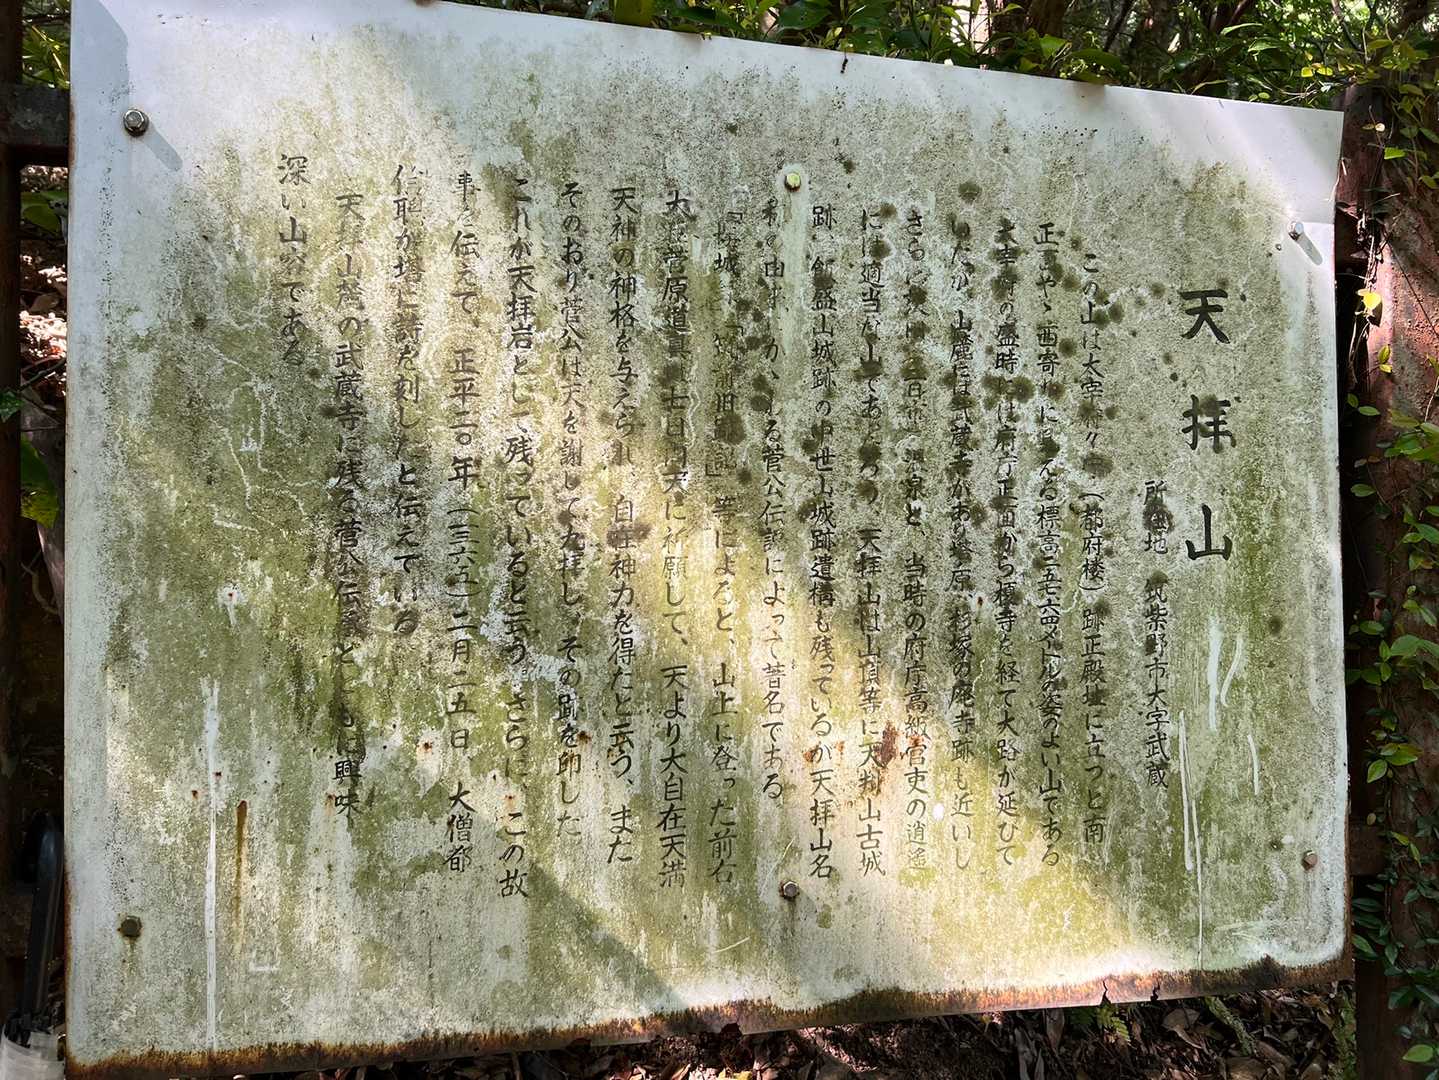 天拝山
所在地 筑紫野市大字武蔵
この山は太宰府 (都府楼)跡正殿址に立つと南
正 やゝ西寄りに える標高二五七・六メートルの姿のよい山である
太宰府の盛時には府庁正面から榎寺を経て大路が延びて
いたが、山麓には武蔵寺があり塔原、杉塚の廃寺跡も近いし
さらに 温泉と、当時の府庁高級官吏の逍遥
には適当な山であ ろう、天拝山は山頂等に天判山古城
跡、飯盛山城跡の中世山城跡遺構も残っているが天拝山名
称の由来 かゝる菅公伝説によって著名である
「 城 」「筑前旧跡記」等によると、山上に登った前右
大臣菅原道真 七日間天に祈願して、天より大自在天満
天神の神格を与えられ、自在神力を得たと云う、また
そのおり菅公は天を謝して九拝し、その跡を印した
これが天拝岩として残っていると云う、さらに、この故
事を伝えて、正平二〇年(一三六五)二月二五日、大僧都
信聡が塔に詩を刻したと伝えている
天拝山麓の武蔵寺に残る菅公伝 とともに興味
深い山容である